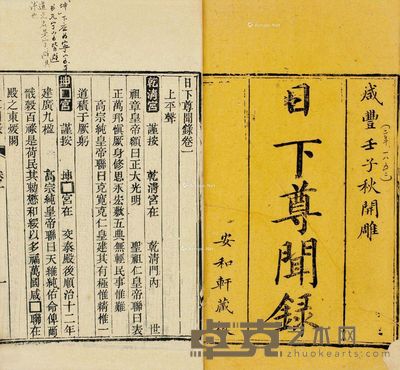 咸豐壬子秋開雕
日下尊聞錄
安和軒藏
日下尊聞錄卷一
上平聲
乾清宮 謹按 乾清宮在 乾清門內 世
祖章皇帝額曰正大光明 聖祖仁皇帝聯曰表
正萬邦愼厥身修思永宏敷五典無輕民事惟難
高宗純皇帝聯曰克寬克仁皇建其有極惟精惟一
道積于厥躬
坤□宮 謹按 坤□宮在 交泰殿後順治十二年
建廣九楹 高宗純皇帝聯曰天維純佑命俾爾
戩穀百祿是荷民其勅懋和綏以多福萬國咸□聯在
殿之東煖閣
卓克艺术网
zhuokearts.com